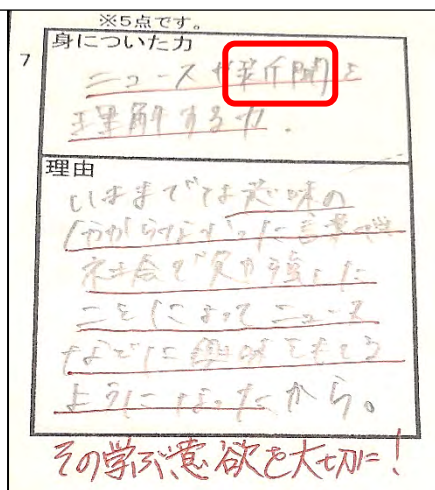 ※5点です。
7
身についた力
ニュースや新聞を
理解する力.
理由
いままでは意味の
わからなかった言葉でも
社会で勉強した
ことによってニュース
などに興味をもてる
ようになったから。
その学ぶ意欲を大切に!